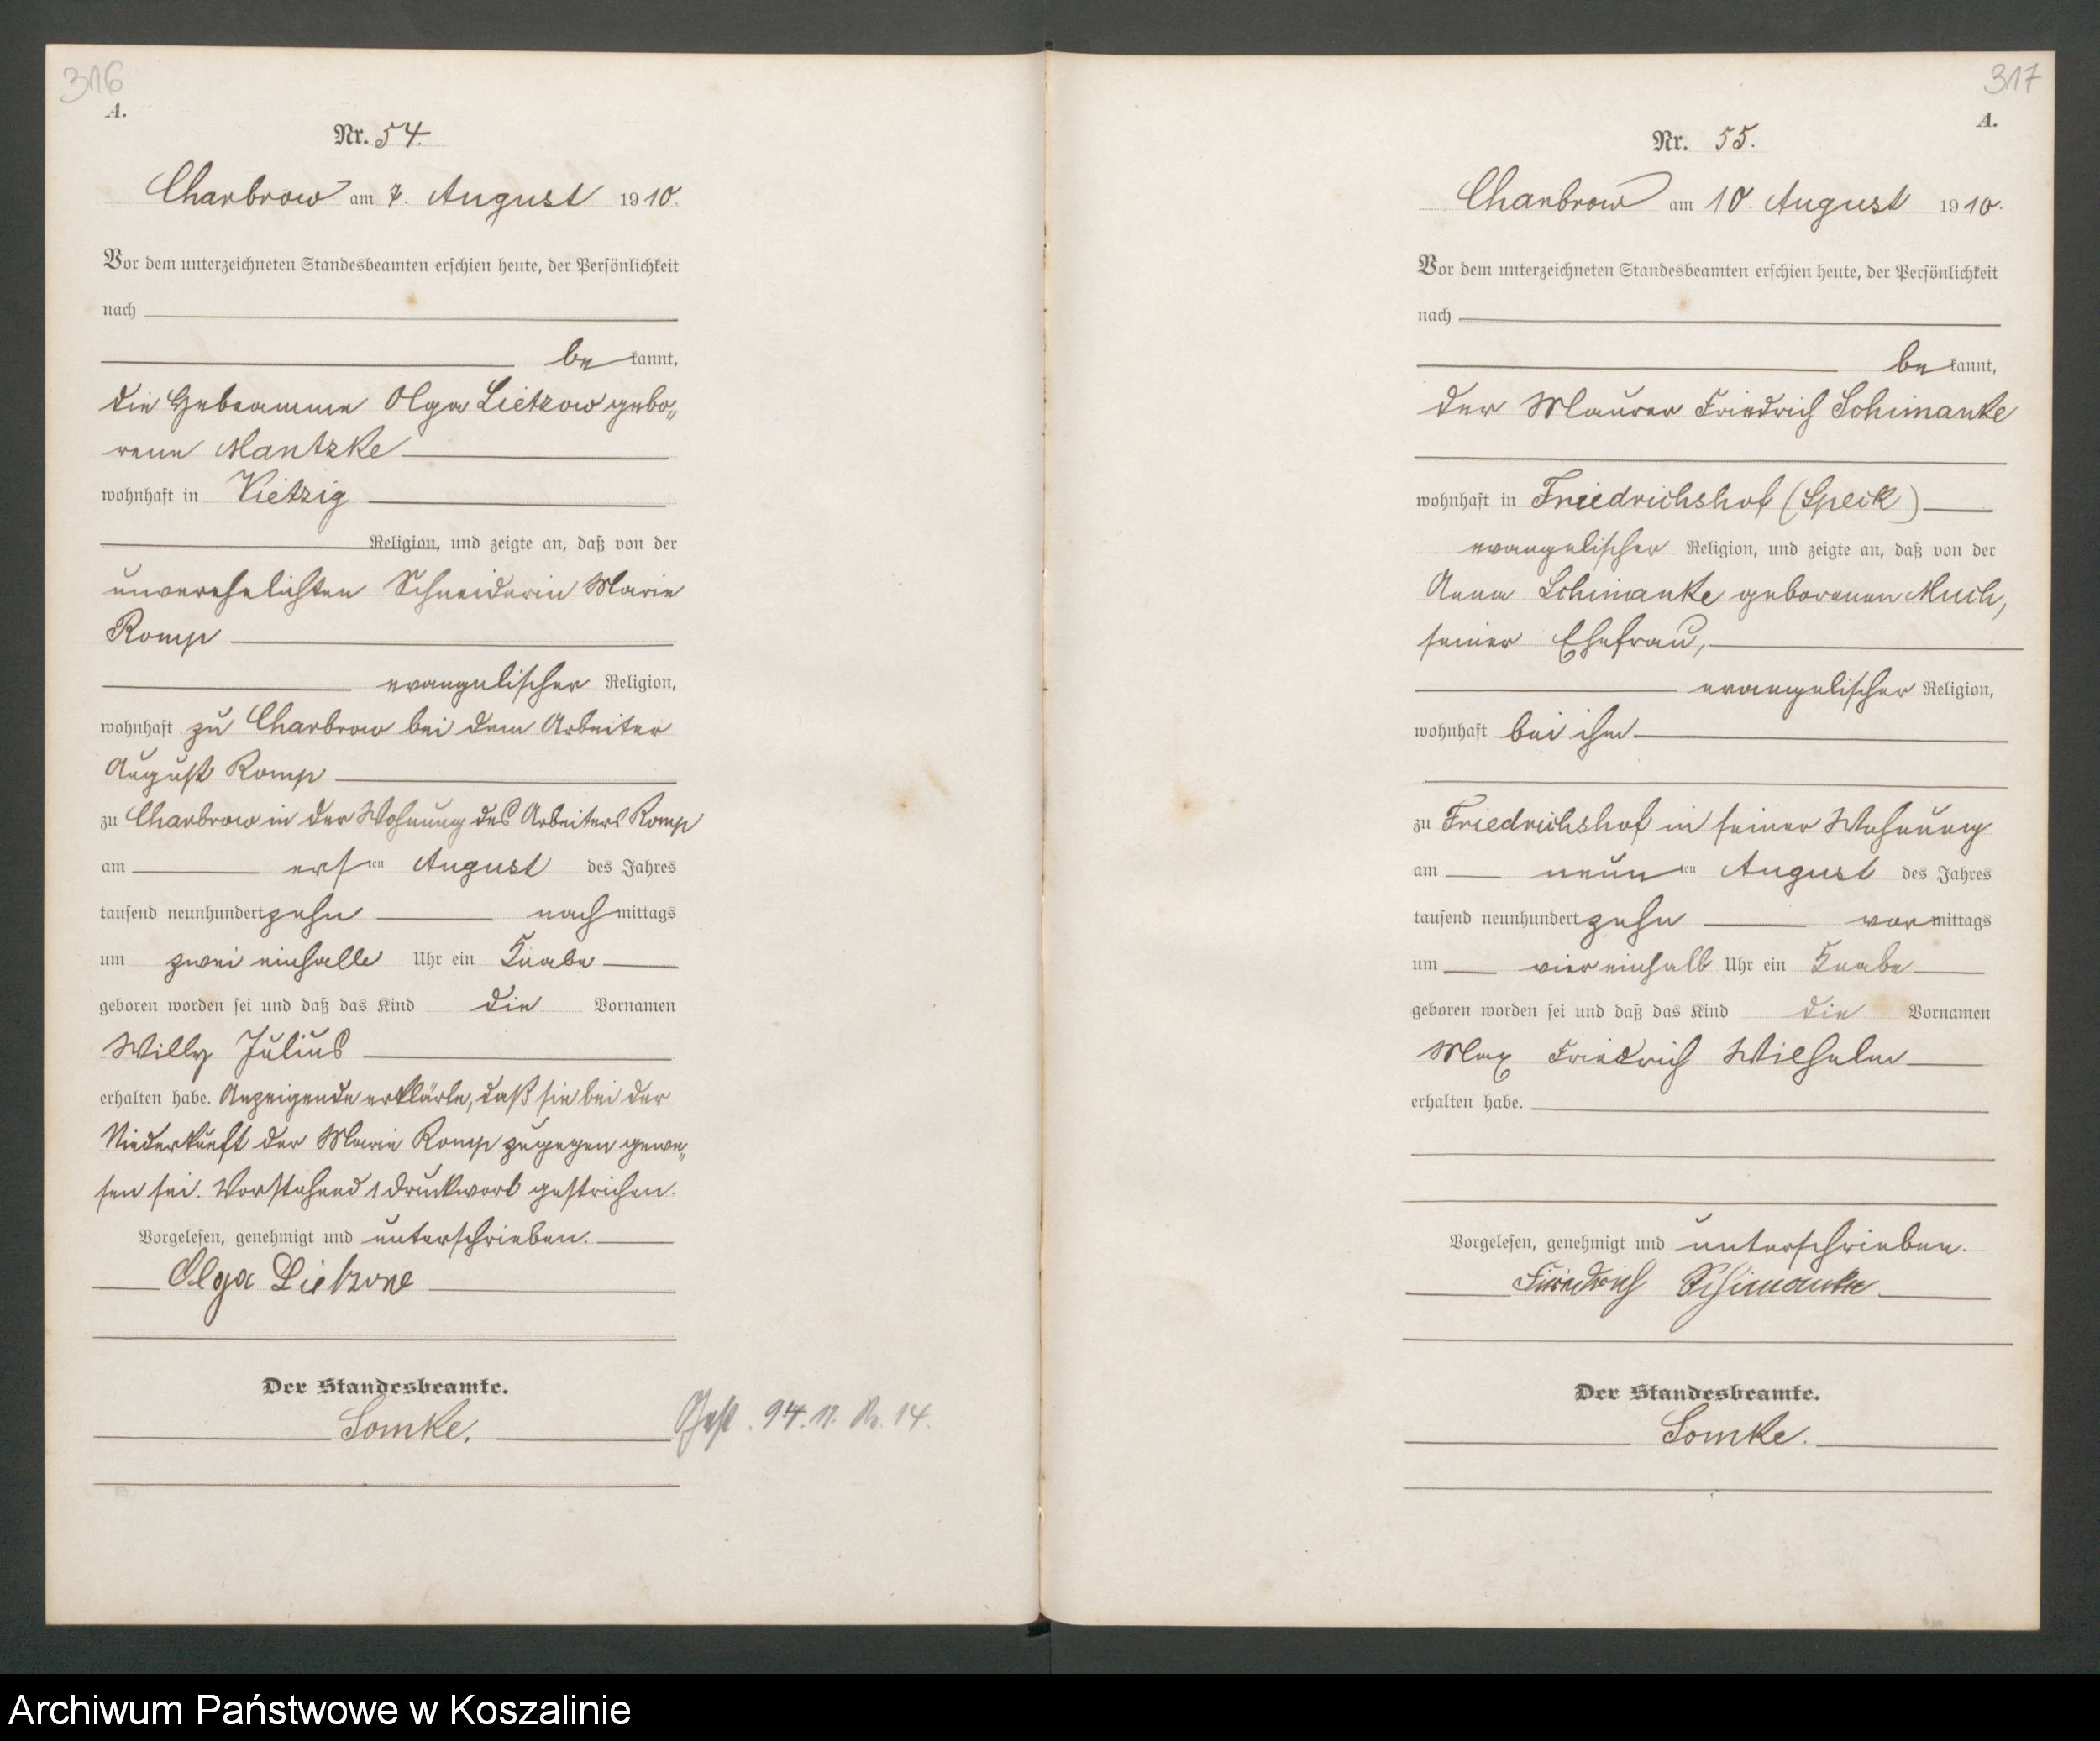 316
A.
Nr. 54.
Charbrow am 7. August 1910.
Vor dem unterzeichneten Standesbeamten erschien heute, der Persönlichkeit
nach
be kannt,
die Hebeamme Olga Lietzow gebo„
rene Mantzke
wohnhaft in Vietzig
Religion, und zeigte an, daß von der
unverehelichten Schneiderin Marie
Romp
evangelischer Religion,
wohnhaft zu Charbrow bei dem Arbeiter
August Romp
zu Charbrow in der Wohnung des Arbeiters Romp
am ersten August des Jahres
tausend neunhundertzehn nachmittags
um zwei einhalb Uhr ein Knabe
geboren worden sei und daß das Kind die Vornamen
Willy Julius
erhalten habe. Anzeigende erklärte, daß sie bei der
Niederkunft der Marie Romp zugegen gewe„
sen sei. Vorstehend 1 Druckwort gestrichen.
Vorgelesen, genehmigt und unterschrieben.
Olga Lietzow
Der Standesbeamte.
Somke.
94. 14.
317
A.
Nr. 55.
Charbrow am 10. August 1910.
Vor dem unterzeichneten Standesbeamten erschien heute, der Persönlichkeit
nach
be kannt,
der Maurer Friedrich Schimanke
wohnhaft in Friedrichshof (Speck)
evangelischer Religion, und zeigte an, daß von der
Anna Schimanke geborenen Much,
seiner Ehefrau,
evangelischer Religion,
wohnhaft bei ihm
zu Friedrichshof in seiner Wohnung
am neunten August des Jahres
tausend neunhundertzehn vormittags
um vier einhalb Uhr ein Knabe
geboren worden sei und daß das Kind die Vornamen
Max Friedrich Wilhelm
erhalten habe.
Vorgelesen, genehmigt und unterschrieben.
Friedrich Schimanke
Der Standesbeamte.
Somke.
Archiwum Państwowe w Koszalinie